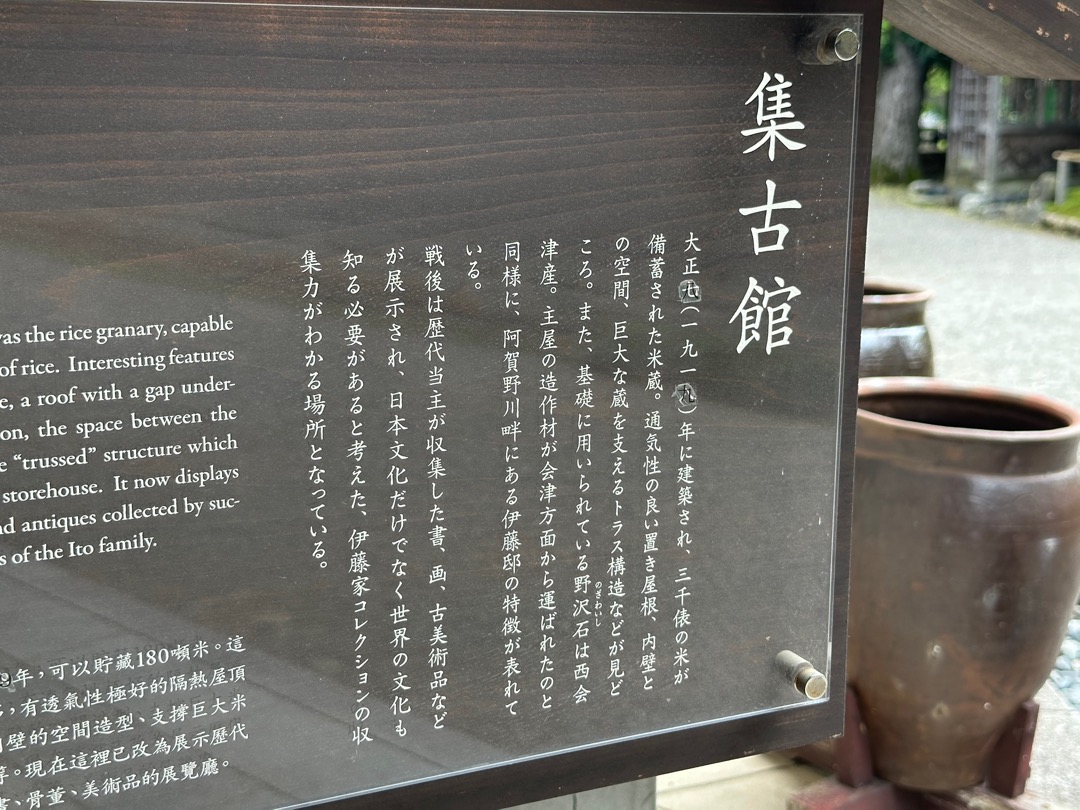 集古館
大正七(一九一九)年に建築され、三千俵の米が
備蓄された米蔵。通気性の良い置き屋根、内壁と
の空間、巨大な蔵を支えるトラス構造などが見ど
ころ。また、基礎に用いられている野沢石は西会
のざわいし
津産。主屋の造作材が会津方面から運ばれたのと
同様に、阿賀野川畔にある伊藤邸の特徴が表れて
いる。
戦後は歴代当主が収集した書、画、古美術品など
が展示され、日本文化だけでなく世界の文化も
知る必要があると考えた、伊藤家コレクションの収
集力がわかる場所となっている。
was the rice granary, capable
of rice. Interesting features
e, a roof with a gap under-
on, the space between the
e “trussed” structure which
storehouse. It now displays
nd antiques collected by suc-
s of the Ito family.
9年，可以貯藏180噸米。這
，有透氣性極好的隔熱屋頂
壁的空間造型、支撐巨大米
等。現在這裡已改為展示歷代
書、骨董、美術品的展覽廳。